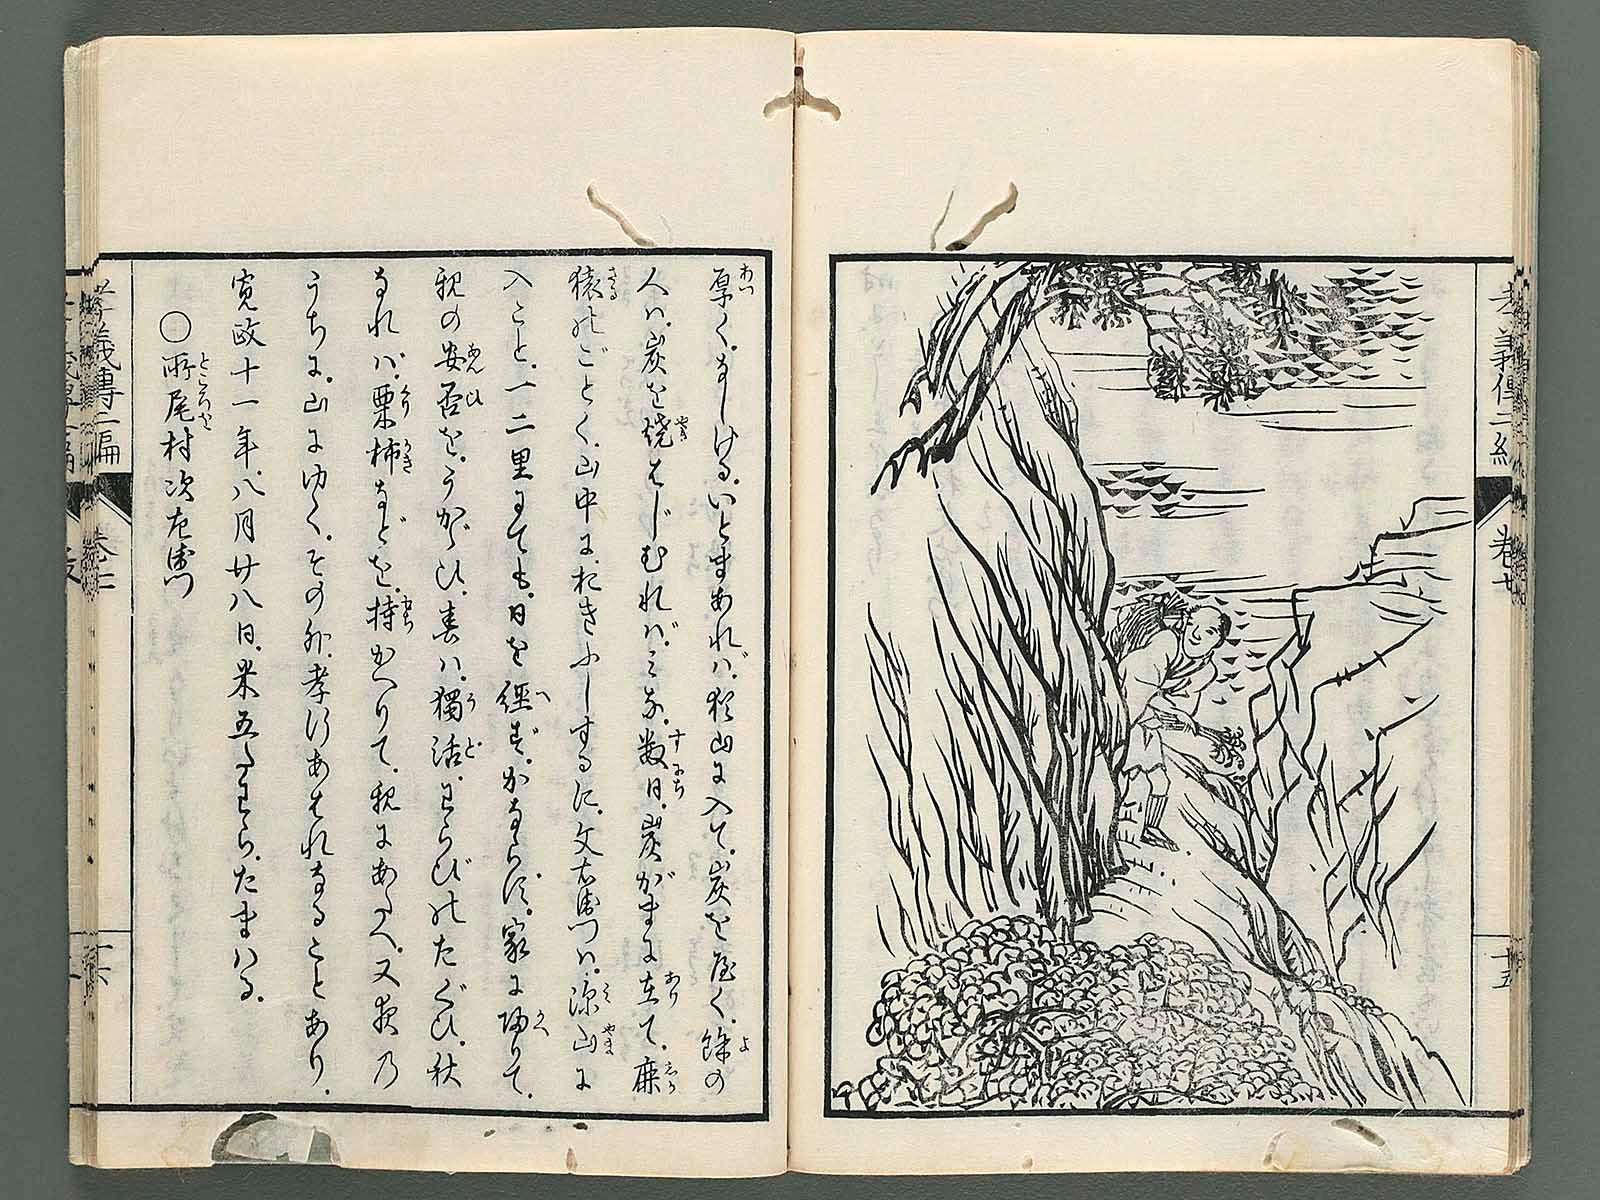 孝義傳二編
巻七
十五
厚く。なしける。いとまあれバ。猶山に入て。炭を燒く。餘の
人ハ。炭を燒はじむれバ。ミな。数日。炭がまに在て。麻
猿のごとく。山中に。おきふしするに。文右衛門ハ。深山に
入こと。一二里にても。日を經ず。かならず。家に帰りて。
親の安否を。うかゞひ。春ハ。獨活。わらびのたぐひ。秋
なれバ。栗柿などを。持かへりて。親にあたへ。又夜乃
うちに。山にゆく。その外。孝行あまれなることあり。
寛政十一年。八月廿八日。米五たわら。たまハる。
○所尾村次左衛門
孝義傳二編
巻七
十六